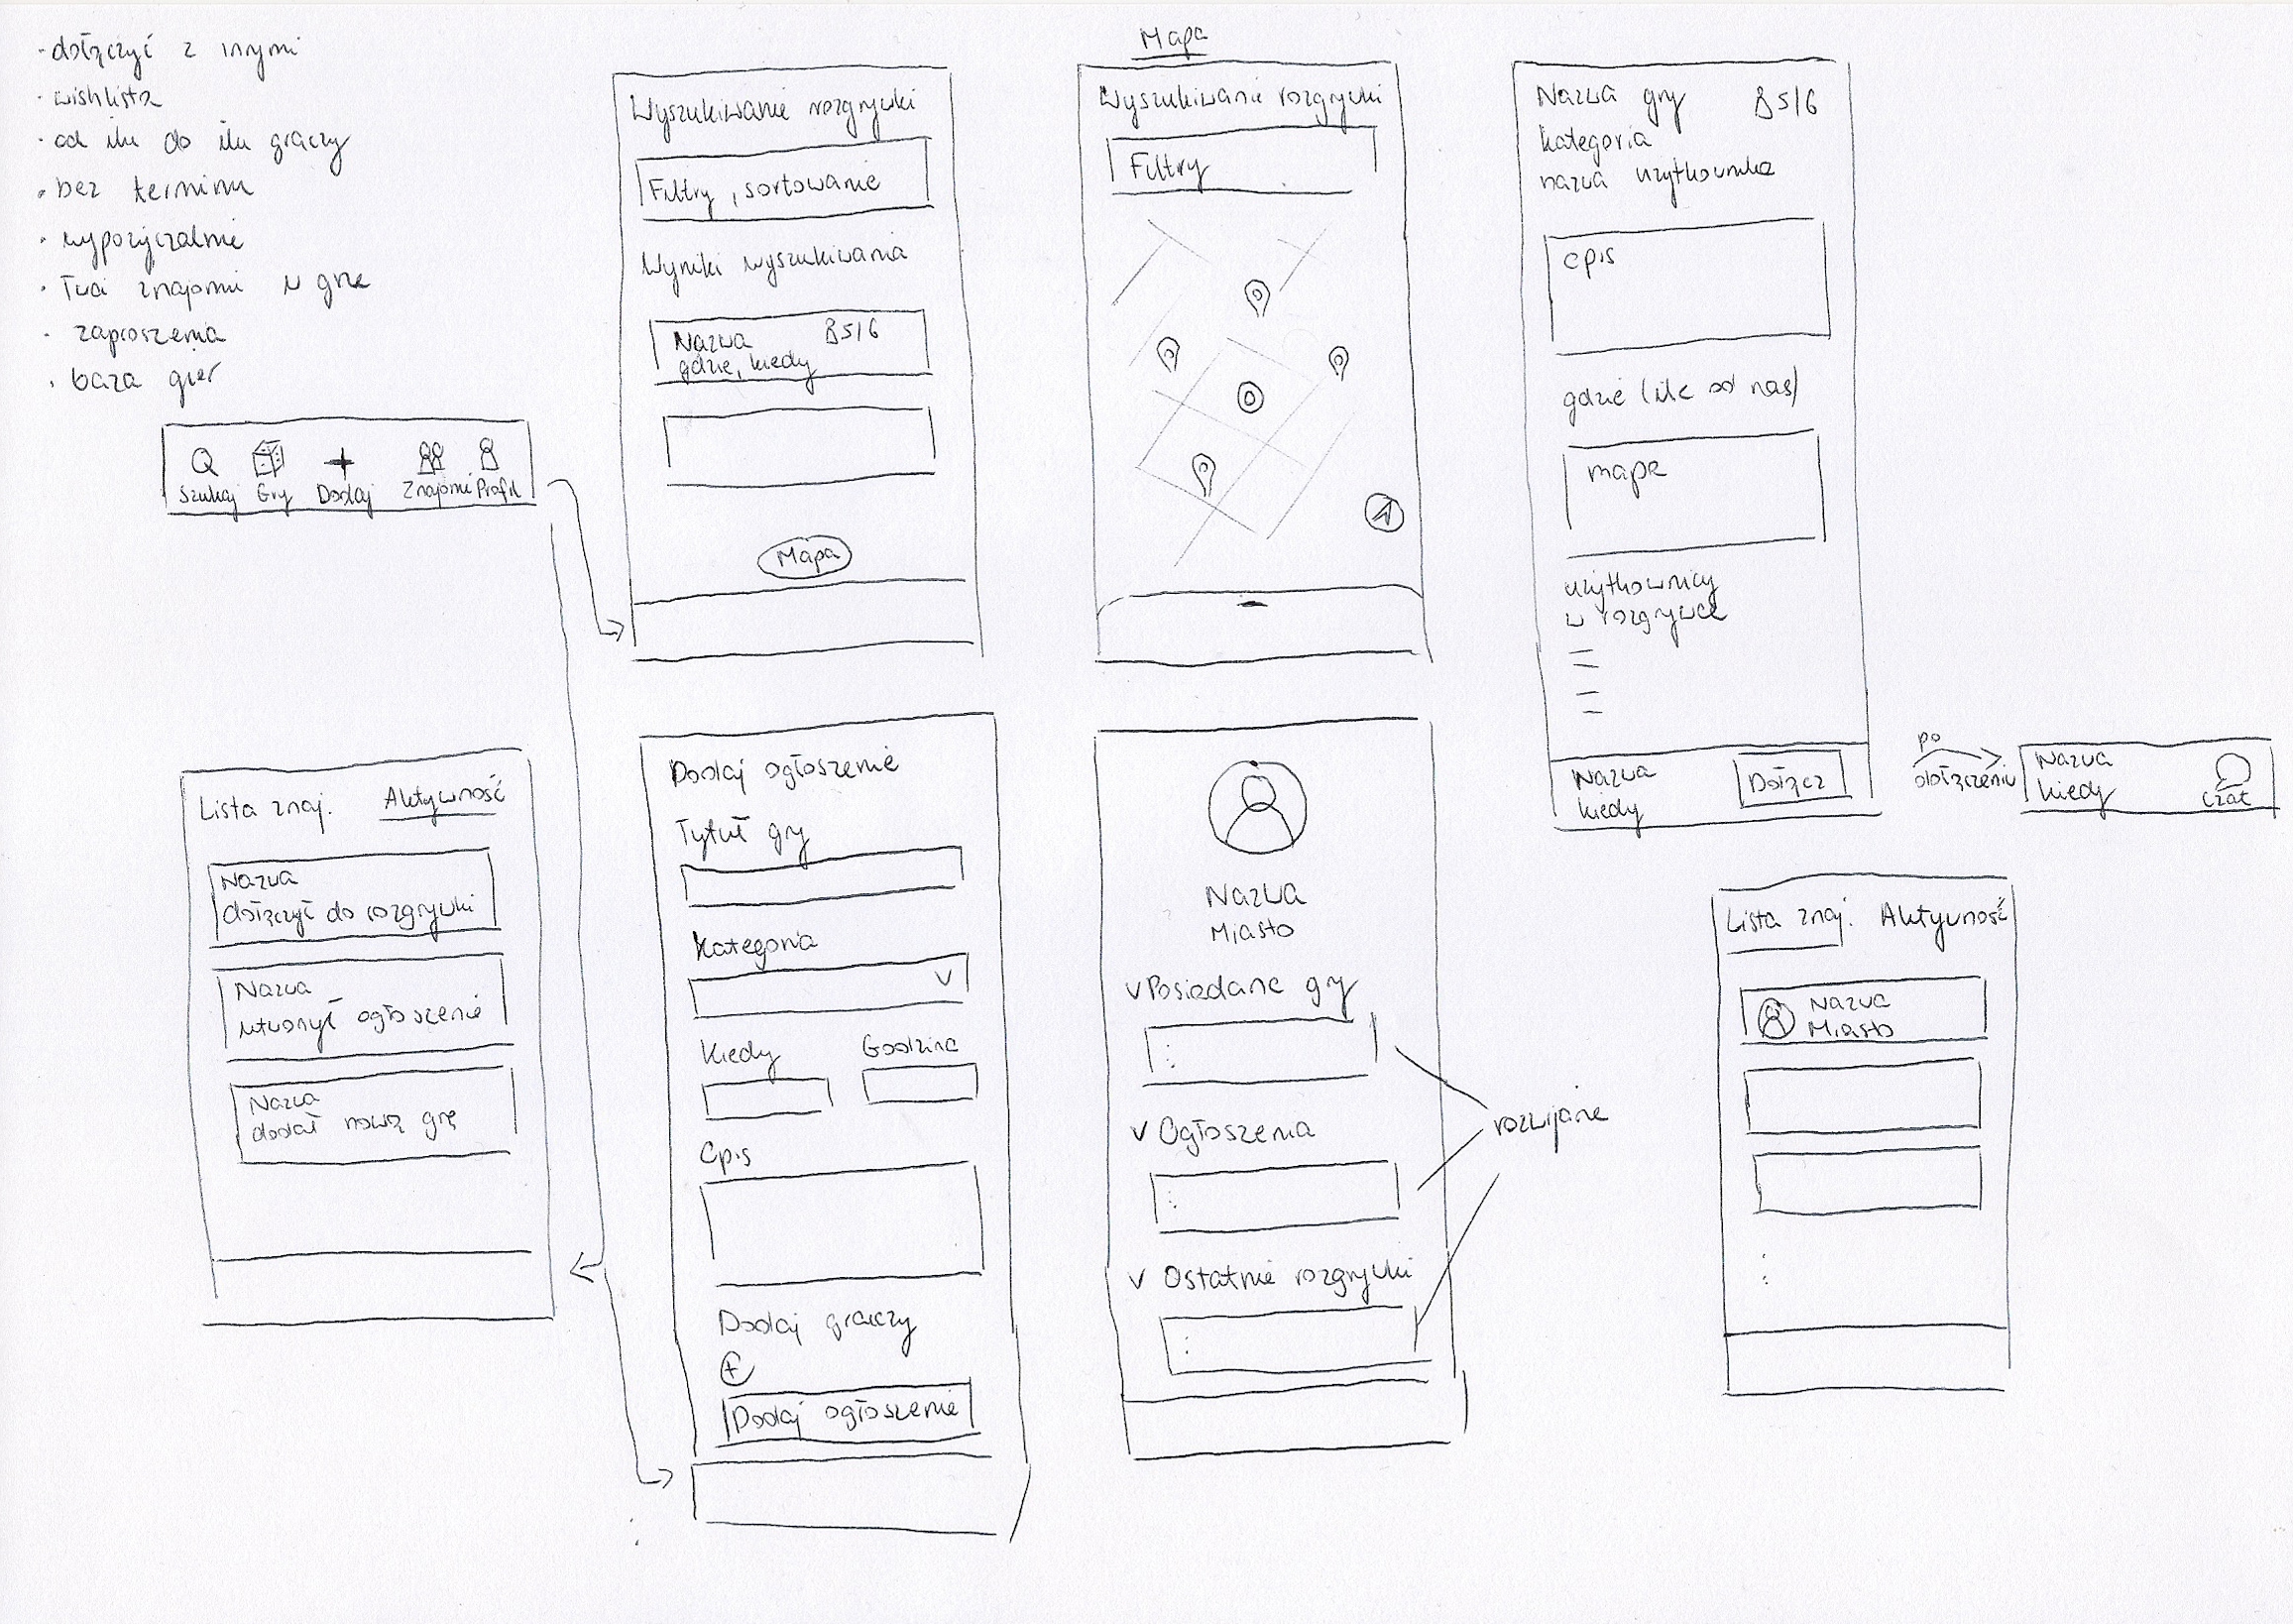 ·dołączyć z innymi
·wishlista
·od ilu do ilu graczy
·bez terminu
·wypożyczalnie
·Twoi znajomi w grze
·zaproszenia
·baza gier
Szukaj Gry Dodaj Znajomi Profil
Wyszukiwanie rozgrywki
Filtry, sortowanie
Wyniki wyszukiwania
Nazwa 5/6
gdzie, kiedy
Mapa
Mapa
Wyszukiwanie rozgrywki
Filtry
Nazwa gry 5/6
kategoria
nazwa użytkownika
opis
gdzie (ile od nas)
mapa
użytkownicy
w rozgrywce
Nazwa
kiedy
Dołącz
po
dołączeniu
Nazwa
kiedy
czat
Lista znaj. Aktywność
Nazwa
dołączył do rozgrywki
Nazwa
utworzył ogłoszenie
Nazwa
dodał nową grę
Dodaj ogłoszenie
Tytuł gry
Kategoria
Kiedy Godzina
Opis
Dodaj graczy
+
Dodaj ogłoszenie
Nazwa
Miasto
Posiadane gry
Ogłoszenia
Ostatnie rozgrywki
rozwijane
Lista znaj. Aktywność
Nazwa
Miasto